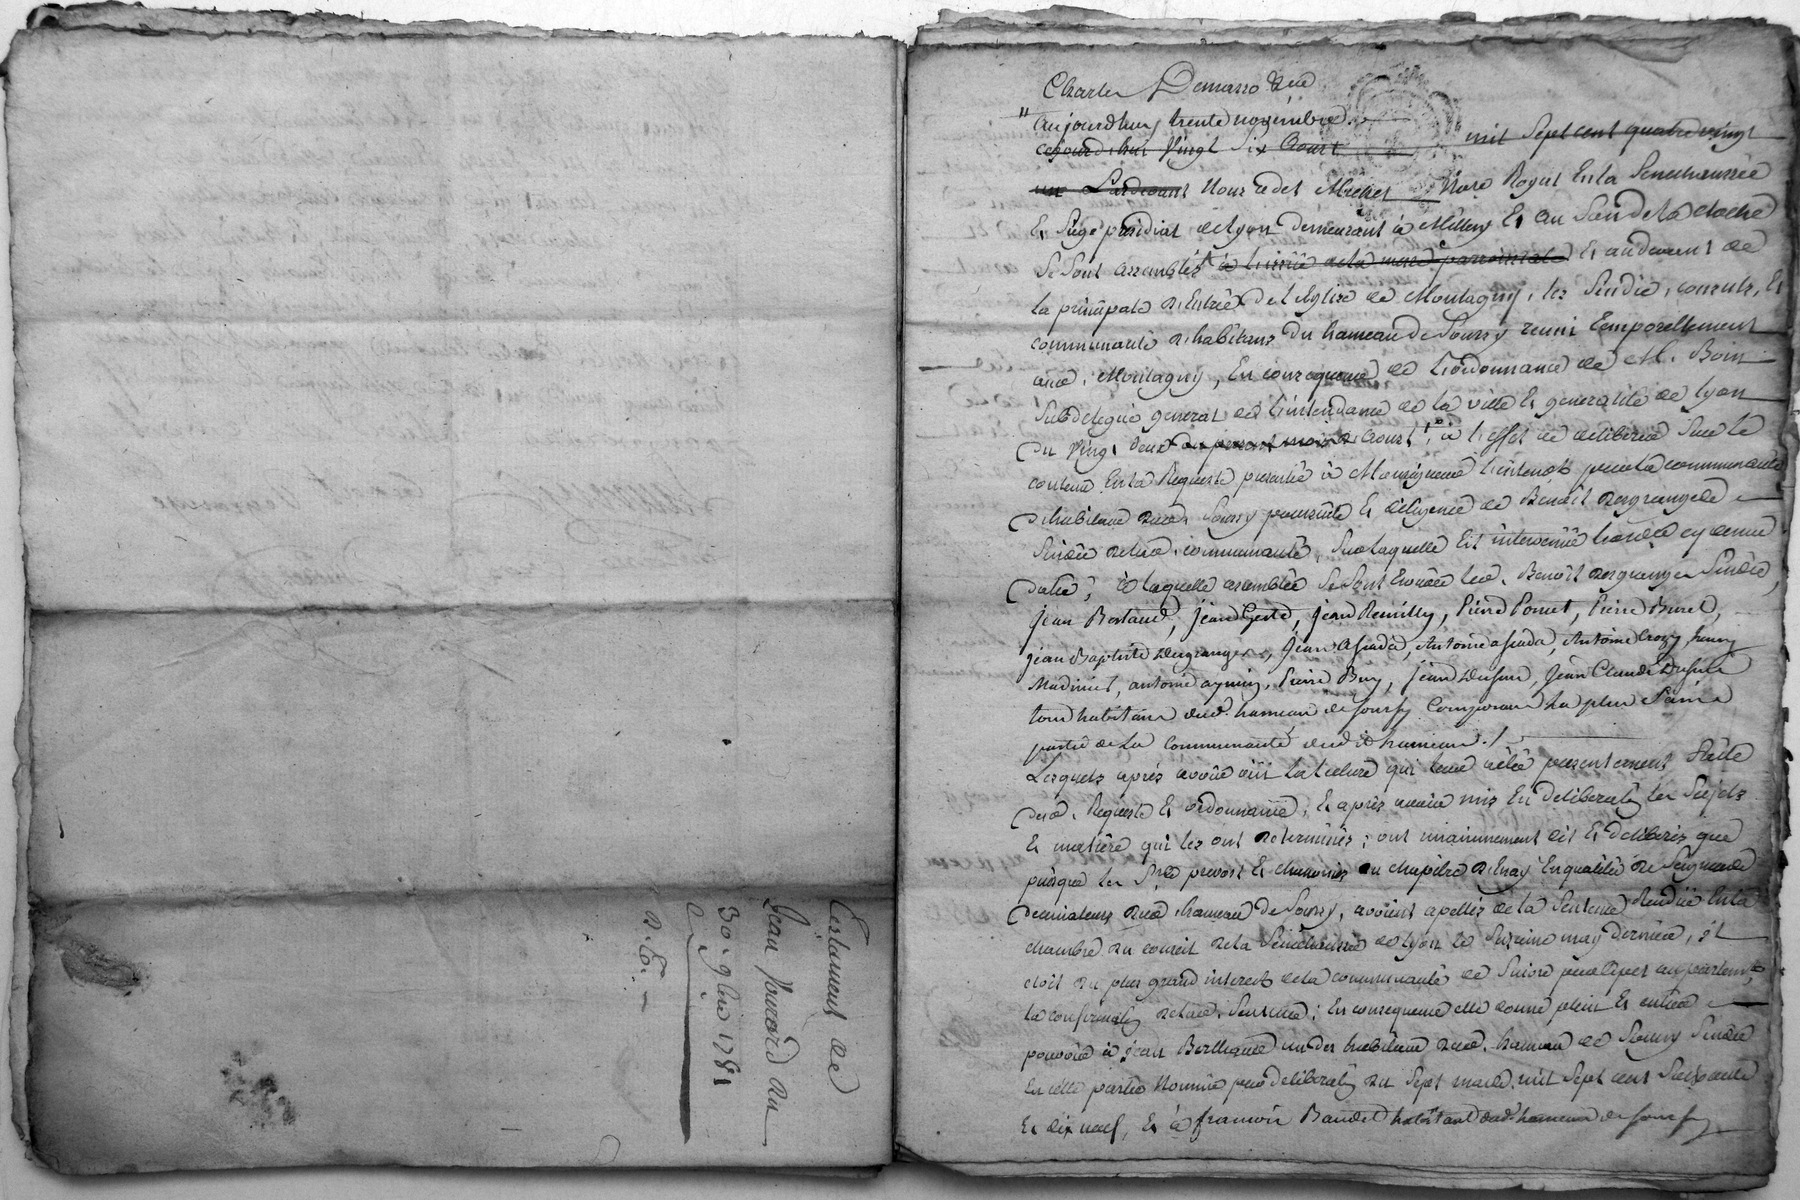 Testament de
Jean Jourord du
30. 9bre 1781
D. E.
Charles Demasso &c
Aujourdhuy trente novembre
cejourd'hui Vingt six Aoust mil sept cent quatre vingt
un Pardevant Nous Notre Royal En la Senechaussée
Et Siege presidial de Lyon demeurant à Millery Et au Son de la cloche
Se Sont assemblés à l'issüe de la messe parroissiale Et audevant de
la principale Entrée de l'Eglise de Montagny, les Sindic, consuls, Et
communauté d'habitans du hameau de Sourzy reuni Temporellement
aud. Montagny, En consequence de l'ordonnance de M. Boin
Subdelegué general de l'intendance de la ville Et generalité de Lyon
du Vingt deux du present mois d'Aoust, à l'effet de deliberer Sur le
contenu En la Requete presentée à Monseigneur l'intendt par la communauté
d'habitans dud. Sourzy poursuite Et diligence de Benoît Desgranges
Sindic de lad. communauté, Sur laquelle Est intervenüe lad. cy devant
datée; à laquelle assemblée Se Sont trouvés led. Benoît Desgranges Sindic,
Jean Bertaud, Jean Gerte, Jean Remilly, Pierre Poncet, Pierre Burel,
Jean Baptiste Desgranges, Jean Asiada, Antoine asiada, Antoine Crozy, henry
Madiniet, antoine Pierre Bruy, Jean Dufour, Jean Claude Dufour
tous habitans dud. hameau de Sourzy Composant La plus Saine
partie de La Communauté dudit hameau./
Lesquels après avoir oüi la lecture qui leur a été presentement faite
desd. Requete Et ordonnance, Et après avoir mis En deliberaon les Sujets
Et matiere qui les ont determinés; ont unanimement dit Et deliberés que
puisque les Srs prevost Et chanoines du chapitre d'Enay En qualités de Seigneurs
decimateurs dud. hameau de Sourzy, avoient apellés de la Sentence Rendüe En la
chambre du conseil de la Senechaussée de Lyon le Sixieme may dernier, il
étoit du plus grand interest de la communauté de Suivre Sur l'apel au parlemt
la confirmaon de lad. Sentence; En consequence elle donne plein Et entier
pouvoir à Jean Berthaud un des habitans dud. hameau de Sourzy Sindic
En cette partie Nommé par deliberaon du Sept mars mil Sept cent Soixante
Et dix neuf, Et à francois Baudet habitant dud. hameau de Sourzy